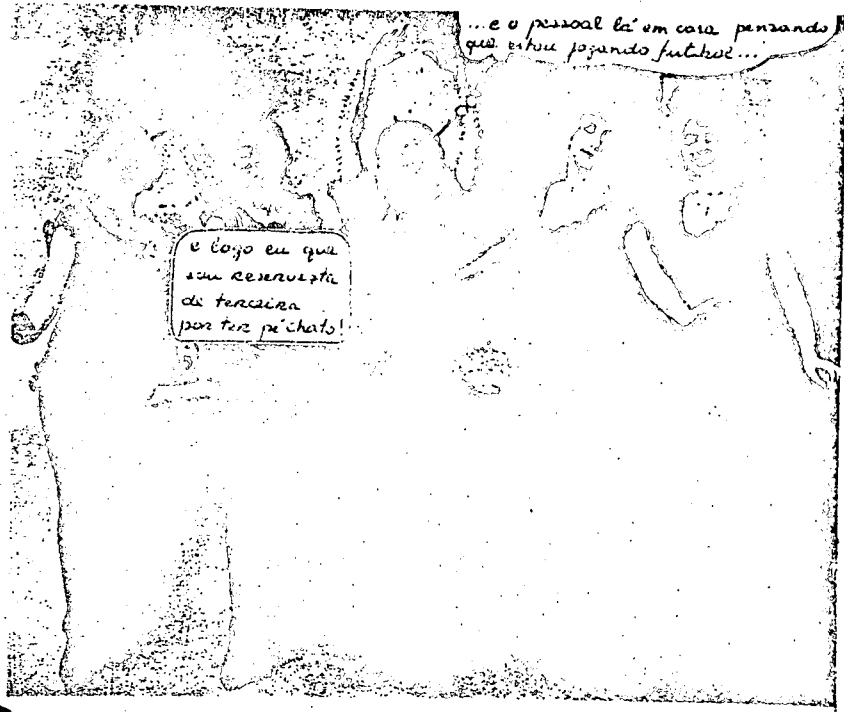 ...e o pessoal lá em casa pensando
que estou jogando futebol...
e logo eu que
sou reservista
de terceira
por ter pé chato!